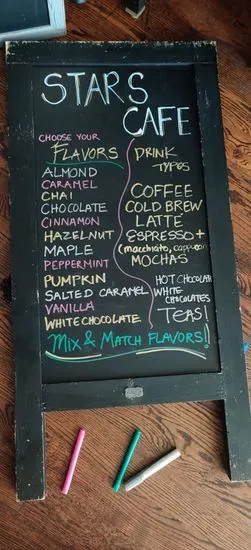 STARS
CAFE
CHOOSE YOUR
FLAVORS
ALMOND
CARAMEL
CHAI
CHOCOLATE
CINNAMON
HAZELNUT
MAPLE
PEPPERMINT
PUMPKIN
SALTED CARAMEL
VANILLA
WHITE CHOCOLATE
DRINK
TYPES
COFFEE
COLD BREW
LATTE
ESPRESSO +
(macchiato, cappuccino)
MOCHAS
HOT CHOCOLAT
WHITE
CHOCOLATES
TEAS!
MIX & MATCH FLAVORS!